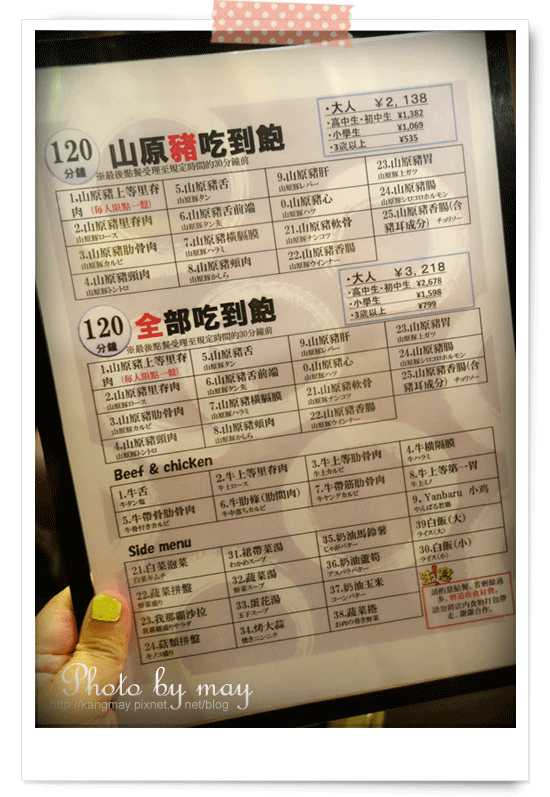 120
分鐘
山原豬吃到飽
※最後點餐受理至規定時間的30分鐘前
・大人 ¥2,138
・高中生・初中生 ¥1,382
・小學生 ¥1,069
・3歲以上 ¥535
1.山原豬上等里脊肉 (每人限點一盤)
2.山原豬里脊肉
山原豚ロース
3.山原豬肋骨肉
山原豚カルビ
4.山原豬頸肉
山原豚トントロ
5.山原豬舌
山原豚タン
6.山原豬舌前端
山原豚タン先
7.山原豬橫膈膜
山原豚ハラミ
8.山原豬頰肉
山原豚かしら
9.山原豬肝
山原豚レバー
0.山原豬心
山原豚ハツ
21.山原豬軟骨
山原豚ナンコツ
22.山原豬香腸
山原豚ウインナー
23.山原豬胃
山原豚上ガツ
24.山原豬腸
山原豚シロコロホルモン
25.山原豬香腸(含豬耳成分) チョリソー
120
分鐘
全部吃到飽
※最後點餐受理至規定時間的30分鐘前
・大人 ¥3,218
・高中生・初中生 ¥2,678
・小學生 ¥1,598
・3歲以上 ¥799
1.山原豬上等里脊肉 (每人限點一盤)
2.山原豬里脊肉
山原豚ロース
3.山原豬肋骨肉
山原豚カルビ
4.山原豬頸肉
山原豚トントロ
5.山原豬舌
山原豚タン
6.山原豬舌前端
山原豚タン先
7.山原豬橫膈膜
山原豚ハラミ
8.山原豬頰肉
山原豚かしら
9.山原豬肝
山原豚レバー
0.山原豬心
山原豚ハツ
21.山原豬軟骨
山原豚ナンコツ
22.山原豬香腸
山原豚ウインナー
23.山原豬胃
山原豚上ガツ
24.山原豬腸
山原豚シロコロホルモン
25.山原豬香腸(含豬耳成分) チョリソー
Beef & chicken
1.牛舌
牛タン塩
2.牛上等里脊肉
牛上ロース
3.牛上等肋骨肉
牛上カルビ
4.牛橫隔膜
牛ハラミ
5.牛帶骨肋骨肉
牛骨付きカルビ
6.牛肋條(肋間肉)
牛中落ちカルビ
7.牛帶筋肋骨肉
牛ヤングカルビ
8.牛上等第一胃
牛上ミノ
9.Yanbaru 小鸡
やんばる若鶏
Side menu
21.白菜泡菜
白菜キムチ
22.蔬菜拼盤
野菜盛り
23.我那霸沙拉
我那覇盛りサラダ
24.菇類拼盤
キノコ盛り
31.裙帶菜湯
わかめスープ
32.蔬菜湯
野菜スープ
33.蛋花湯
玉子スープ
34.烤大蒜
焼きニンニク
35.奶油馬鈴薯
じゃがバター
36.奶油蘆筍
アスパラバター
37.奶油玉米
コーンバター
38.蔬菜捲
お肉の巻き野菜
39白飯(大)
ライス(大)
30.白飯(小)
ライス(小)
請酌量點餐。若剩餘過
多，將追收食材費。
請勿將店內食物打包帶
走。謝謝合作。
Photo by may
http://kangmay.pixnet.net/blog